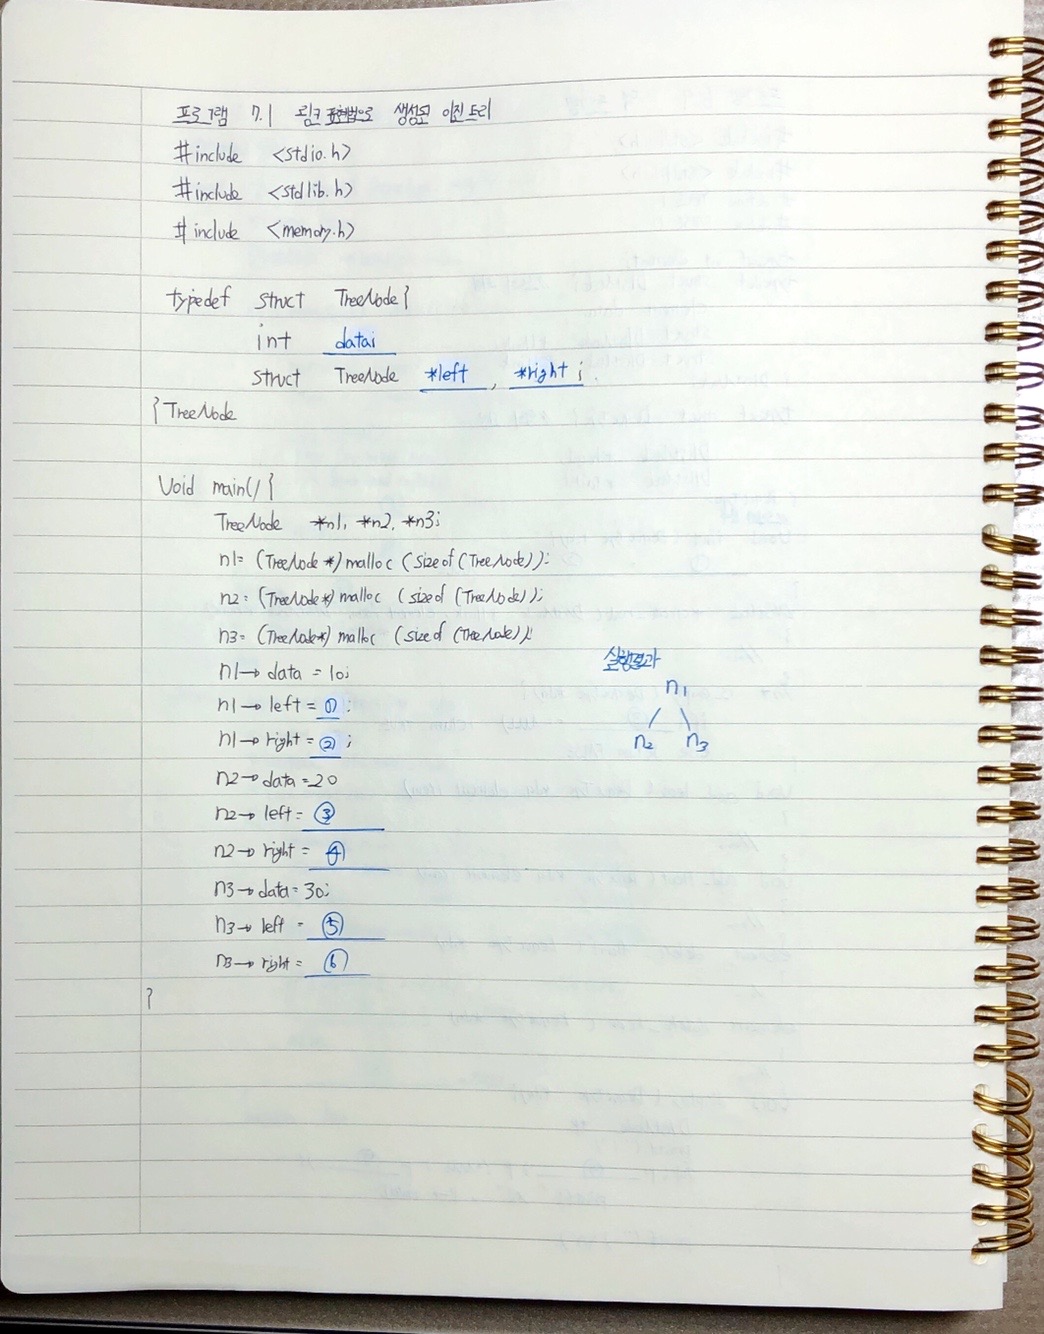 프로그램 7.1 링크 표현법으로 생성된 이진 트리
#include <stdio.h>
#include <stdlib.h>
#include <memory.h>
typedef struct TreeNode{
int data;
struct TreeNode *left, *right;
}TreeNode
Void main(){
TreeNode *n1, *n2, *n3;
n1= (TreeNode *) malloc (sizeof (TreeNode));
n2= (TreeNode*) malloc (sizeof (TreeNode));
n3= (TreeNode*) malloc (sizeof (TreeNode));
n1→ data = 10;
n1→ left = ①;
n1→ right = ②;
n2→ data =20
n2→ left= ③
n2→ right = ④
n3→ data= 30;
n3→ left = ⑤
n3→ right = ⑥
}
실행결과
n1
n2 n3